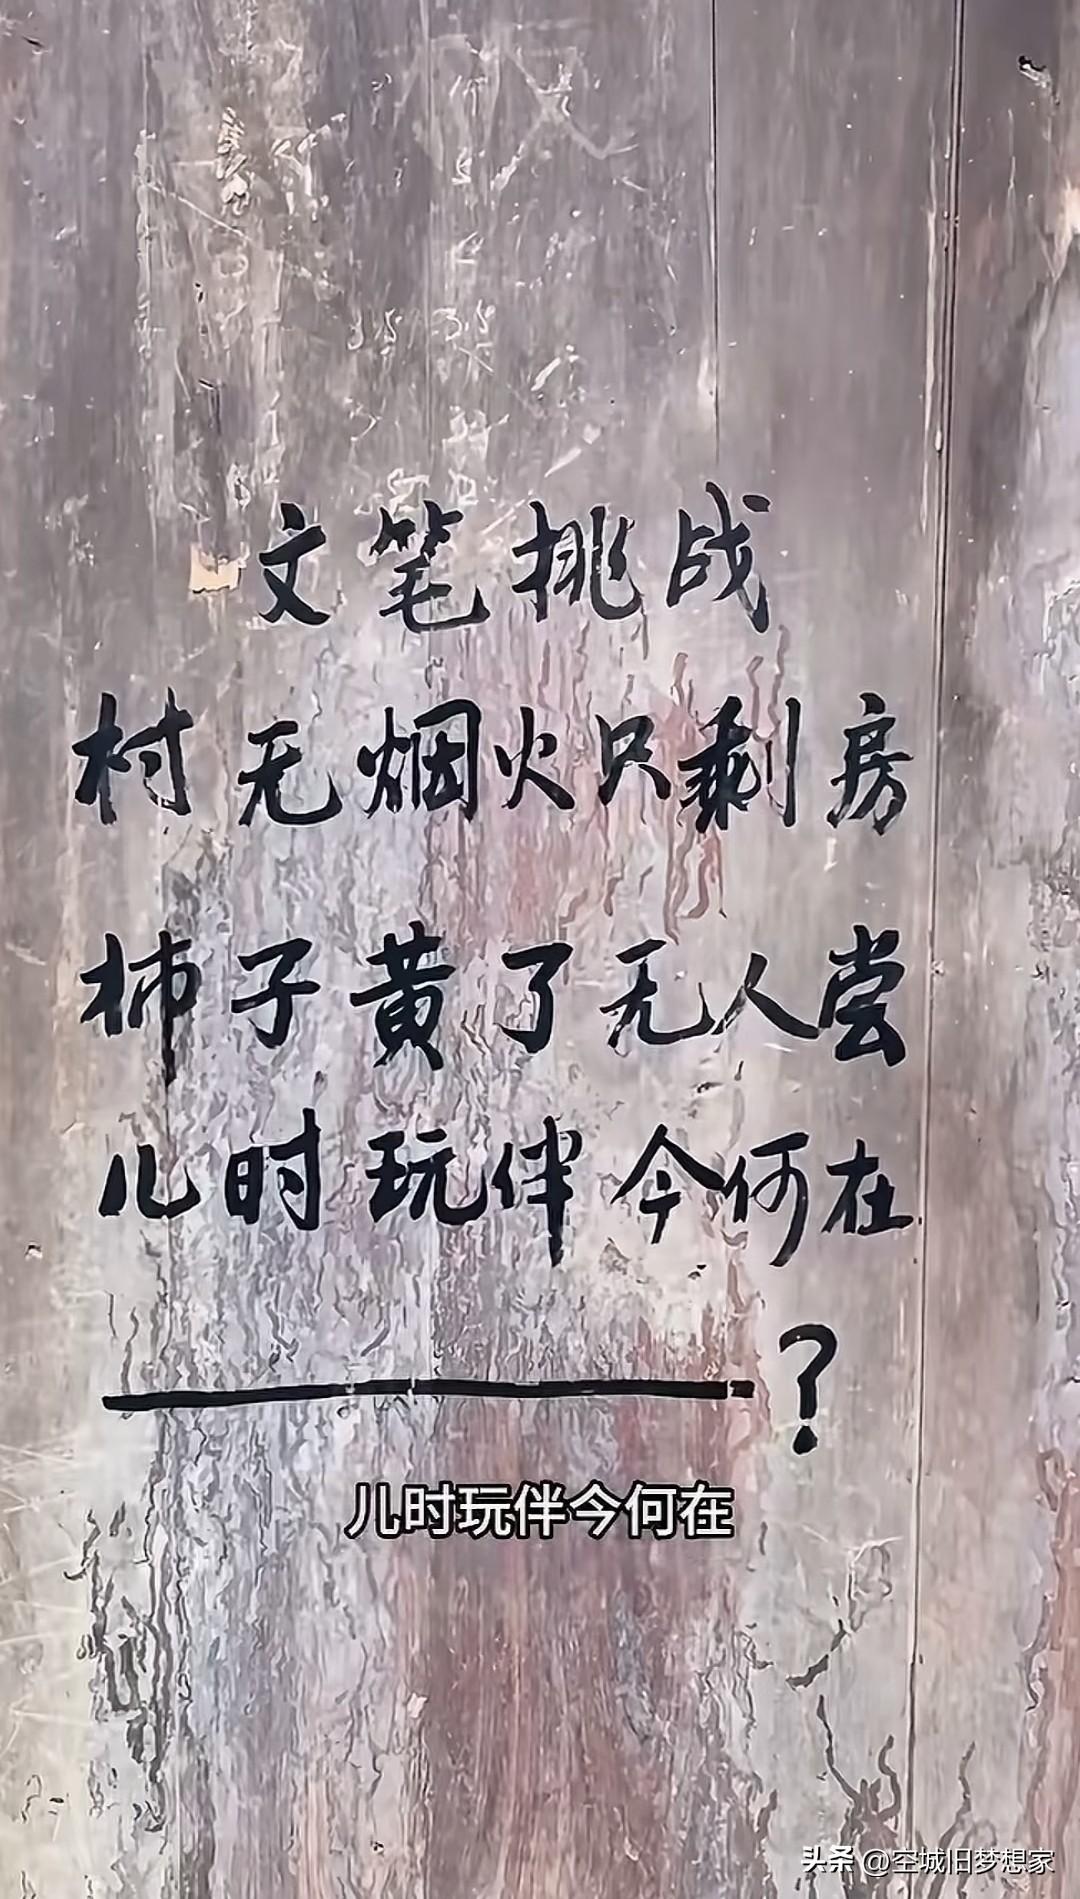 文笔挑战
村无烟火只剩房
柿子黄了无人尝
儿时玩伴今何在
?
儿时玩伴今何在
头条 @空城旧梦想家